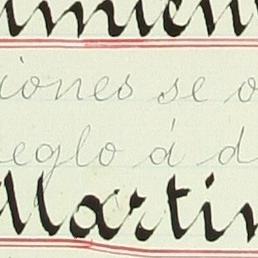 imien
iones se o
eglo á d
Martin